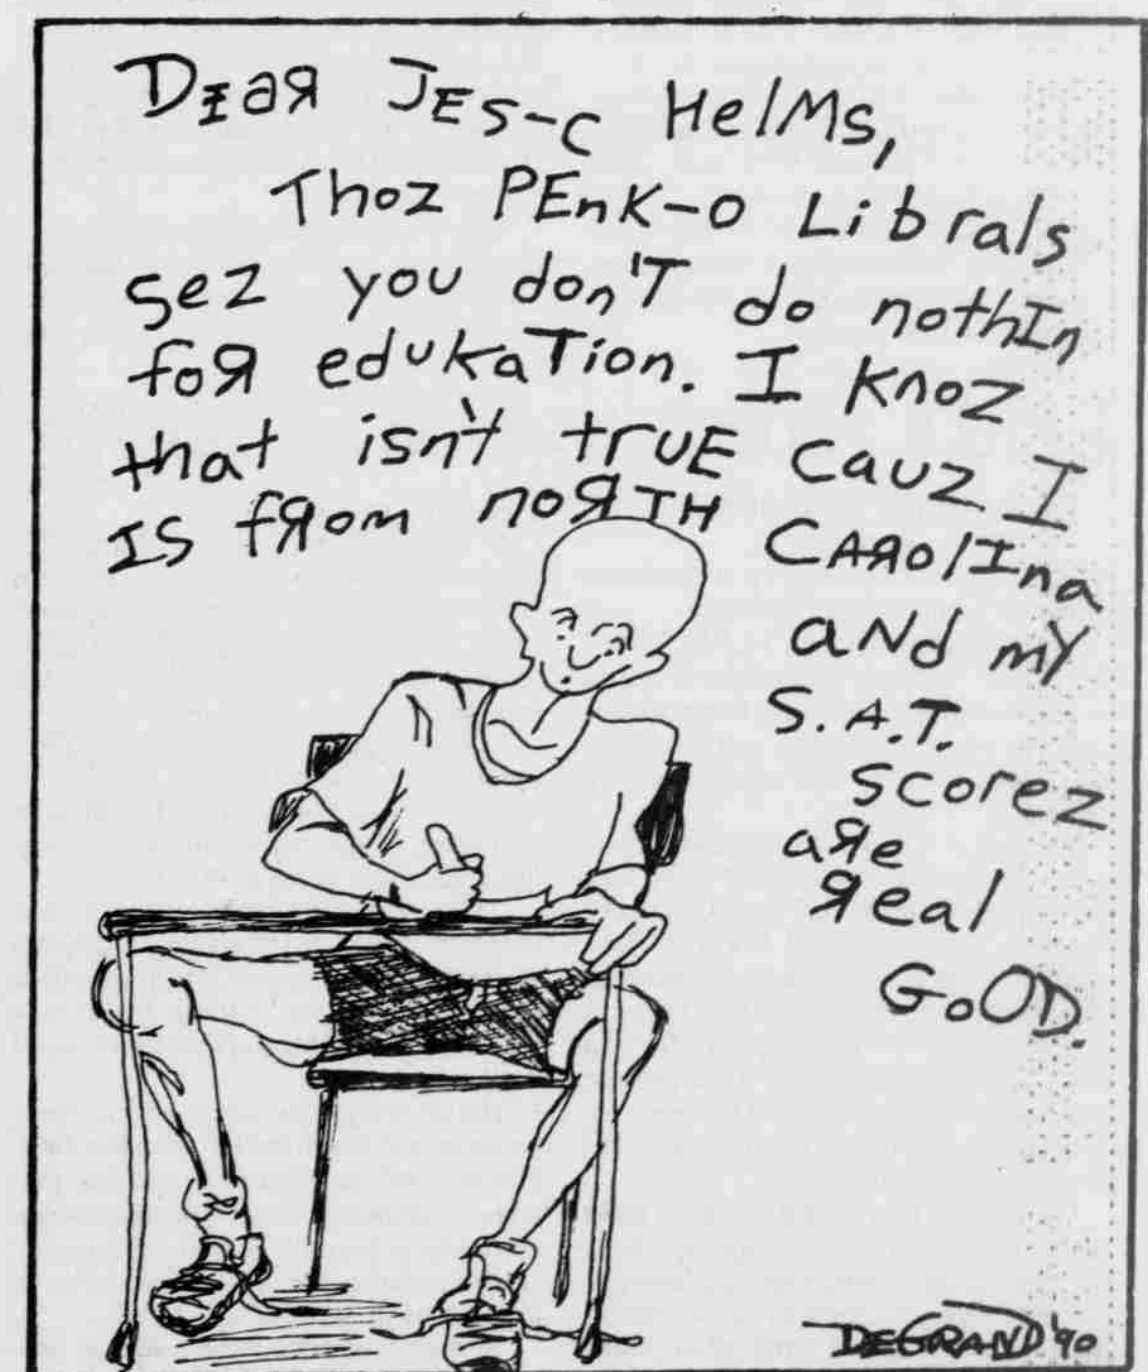 DEaR JES-C HelMs,
Thoz PEnK-O Librals
sez you don'T do nothIn
foR edukaTion. I knoz
that isn't truE cauz I
IS fRom noRTH CARolIna
aNd mY
S.A.T.
scorez
aRe
Real
GoOD.
DEGRAND '90